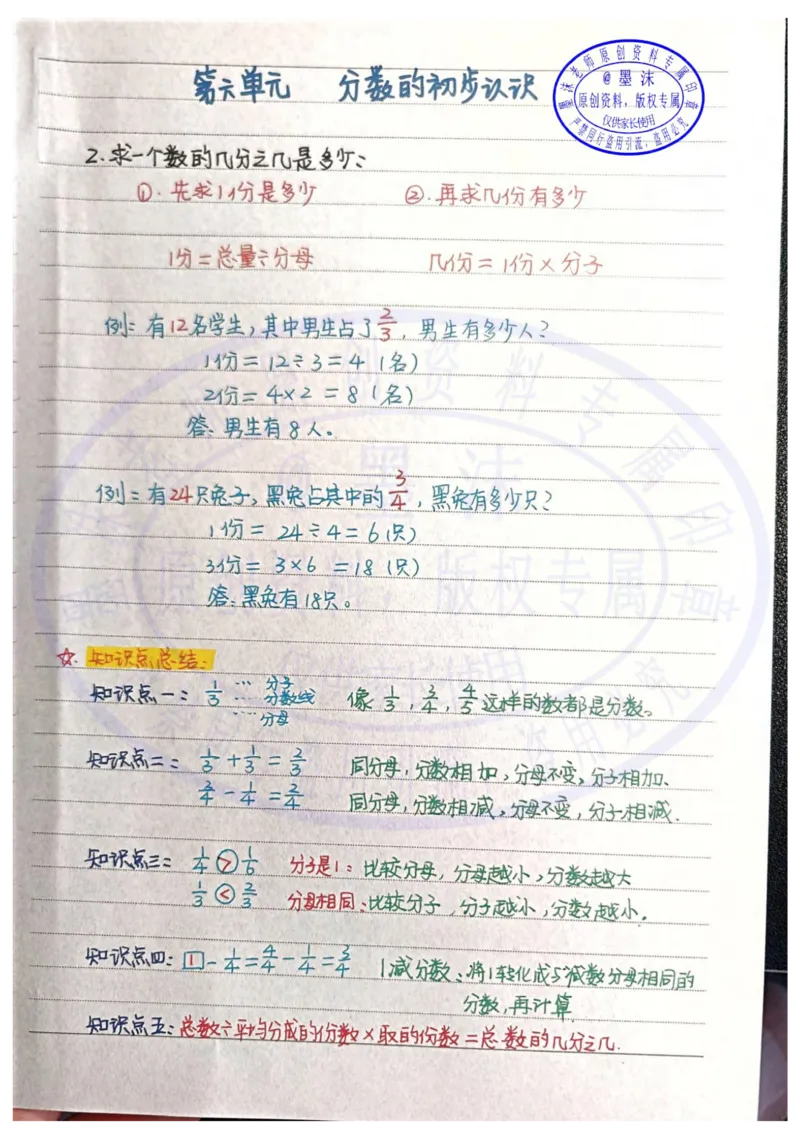 第六单元 分数的初步认识
墨沫老师原创资料专属印章
@墨沫
原创资料，版权专属
仅供家长使用
严禁同行盗用引流，盗用必究
2.求一个数的几分之几是多少：
①.先求1份是多少 ②.再求几份有多少
1份=总量÷分母 几份=1份×分子
例：有12名学生，其中男生占了2/3，男生有多少人？
1份=12÷3=4（名）
2份=4×2=8（名）
答：男生有8人。
例：有24只兔子，黑兔占其中的3/4，黑兔有多少只？
1份=24÷4=6（只）
3份=3×6=18（只）
答：黑兔有18只。
☆.知识点总结：
知识点一：1/3 …分子 …分数线 …分母 像1/3，3/4，4/5这样的数都是分数。
知识点二：1/3+1/3=2/3 同分母，分数相加，分母不变，分子相加、
3/4-1/4=2/4 同分母，分数相减，分母不变，分子相减.
知识点三：1/4>1/6 分子是1：比较分母，分母越小，分数越大
1/3<2/3 分母相同：比较分子，分子越小，分数越小.
知识点四：1-1/4=4/4-1/4=3/4 1减分数：将1转化成与减数分母相同的
分数，再计算.
知识点五：总数÷平均分成的份数×取的份数=总数的几分之几.